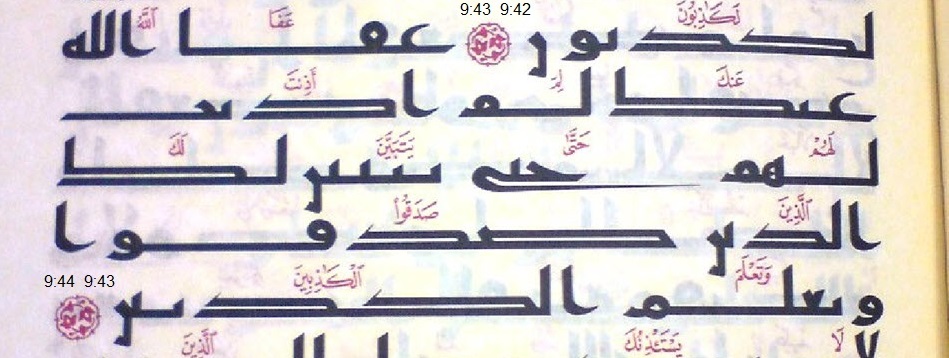 9:43 9:42
لَكَٰذِبُونَ عَفَا ٱللَّهُ
لكذبون عفا الله
عَنكَ لِمَ أَذِنتَ
عنك لم اذنت
لَهُمْ حَتَّىٰ يَتَبَيَّنَ لَكَ
لهم حتى يتبين لك
ٱلَّذِينَ صَدَقُوا۟
الذين صدقوا
وَتَعْلَمَ ٱلْكَٰذِبِينَ
وتعلم الكذبين
9:44 9:43
لَا يَسْتَـْٔذِنُكَ ٱلَّذِينَ